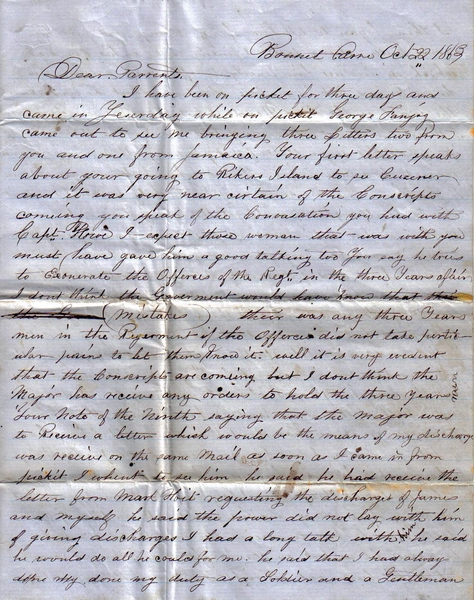 Bonnet Carre Oct 22 1863
Dear Parrents
I have been on picket for three days and
came in Yeserday while on picket George
came out to see me bringing three Letters two from
you and one from Jamaica. Your first letter speaks
about your going to Rikers Island to see
and it was very near cirtain of the Conscripts
comeing you speak of the Convasation you had with
Capt. Howe I expect those woman that was with you
must have gave him a good talking too You say he tries
to Exonerate the Offerces of the Regt. in the three Years afair
I dont think the Goverment would have know that
(Mistakes) their was any three Years
men in the Regerment if the Offerces did not take partic-
ular pains to let them know it. well it is very evedent
that the Conscripts are coming but I dont think the
Major has receive any orders to hold the three Years men
Your Note of the Ninth saying that the Major was
to Receive a letter which would be the means of my discharge
was receive on the same Mail as soon as I came in from
pickit I whent to see him he said he has receive the
letter from Mark Hoit requesting the discharge of James
and myself he said the power did not lay with him
of giving discharges I had a long talk with him he said
he would do all he could for me. he said that I had alway
done my duty as a Soldier and a Gentleman